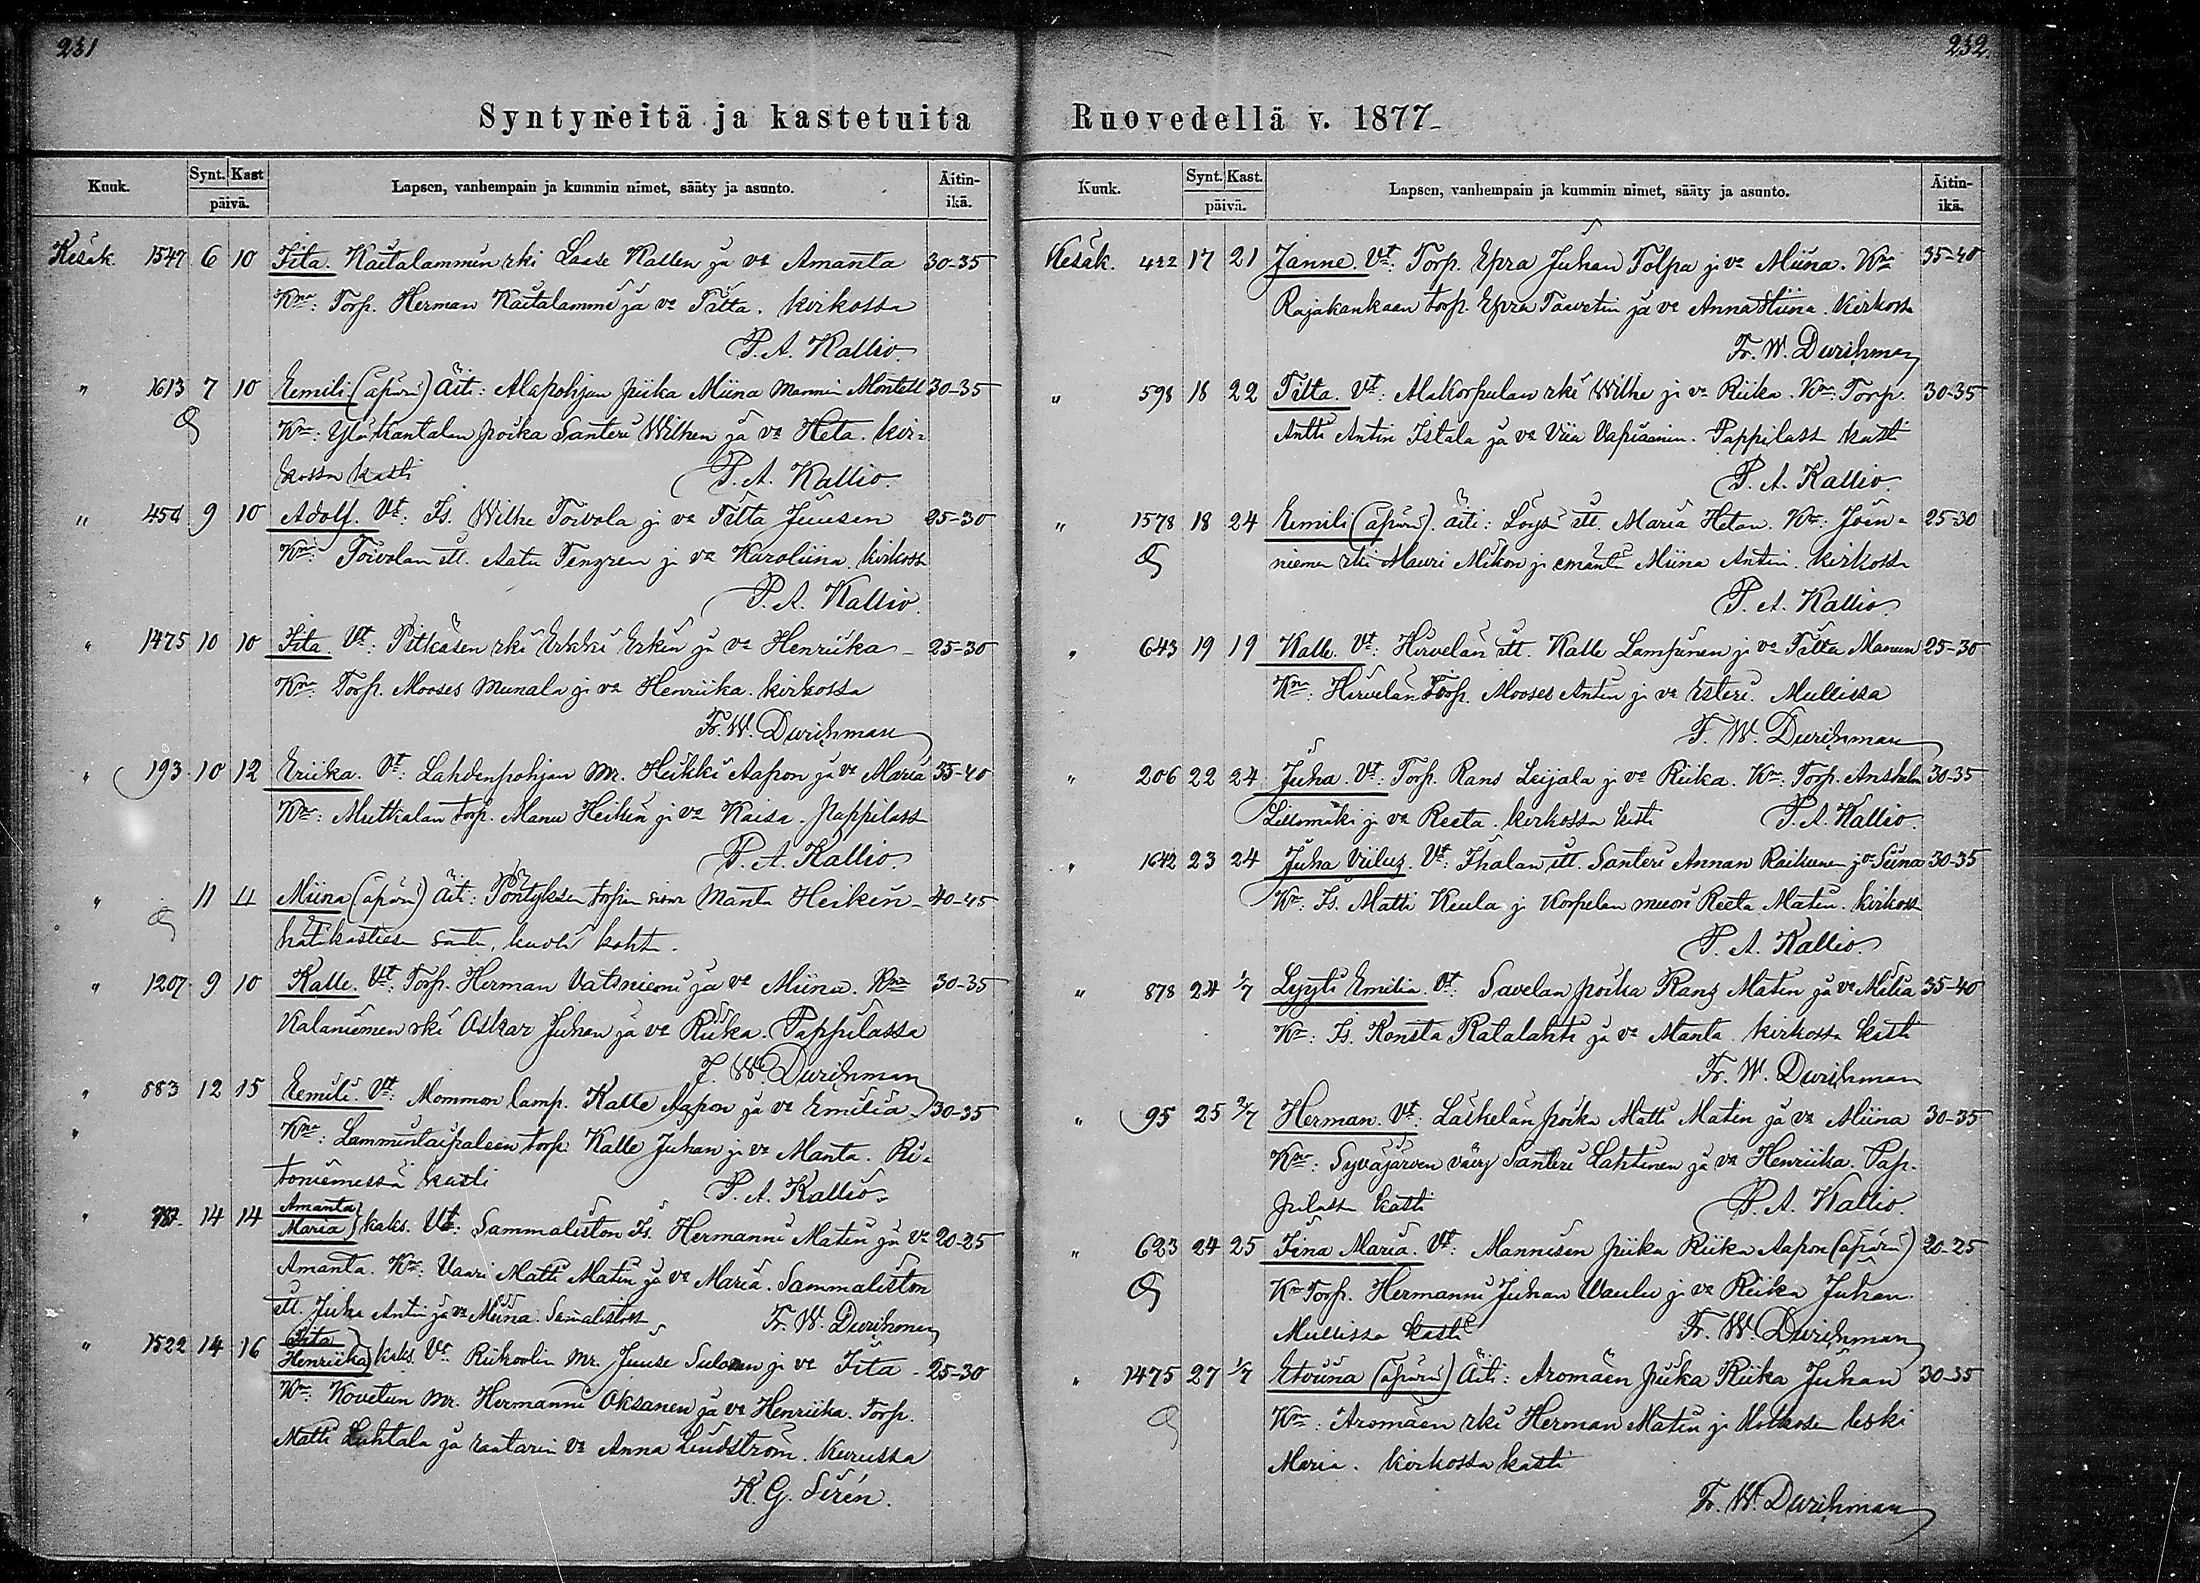 231
Syntyneitä ja kastetuita
Kuuk. Synt. Kast päivä. Lapsen, vanhempain ja kummin nimet, sääty ja asunto. Äitin-ikä.
Kesäk 1547 6 10 Iita. Kaitalammin rki Laase Kallen ja va Amanta 30-35
Kmt: Torp. Herman Kaitalammi ja va Titta. kirkossa
P. A. Kallio.
" 1613 7 10 Eemili (äpärä) Äiti: Alapohjan piika Miina Mannin Montell 30-35
Km: Ylä Kantalan poika Santeri Wilhen ja va Heta. kir-
kossa kasti P. A. Kallio.
" 454 9 10 Adolf. Vt: Is. Wilhe Toivola ja va Titta Juusen 25-30
Km: Toivolan itl. Aatu Tengren ja va Karoliina. kirkossa
P. A. Kallio.
" 1475 10 10 Iita Vt: Pitkäsen rki Erkki Erkin ja va Henriika 25-30
Km: Torp. Mooses Munala ja va Henriika. kirkossa
Fr. W. Durchman
" 193 10 12 Eriika. Vt: Lahdenpohjan mr. Heikki Aapon ja va Maria 35-40
Km: Mutkalan torp. Manu Heikin ja va Kaisa. Pappilass
P. A. Kallio
" 11 11 Miina (äpärä) Äiti: Pöntyksen torpan Manta Heikin 40-45
hätäkasteen kuoli koht.
" 1207 9 10 Kalle. Vt. Torp. Herman Vatsniemi ja va Miina. Km 30-35
Kalaniemen rki Oskar Juhan ja va Riika. Pappilassa
F. W. Durchman
" 883 12 15 Eemili. Vt: Mommon lamp. Kalle Aapon ja va Emilia 30-35
" Km: Lammintaipaleen torp. Kalle Juhan ja va Manta. Ri-
toniemessä kasti P. A. Kallio.
" 14 14 Amanta
Maria } kaks. Vt: Sammaliston Is. Hermanni Matin ja va 20-25
Amanta. Km: Vaari Matti Matin ja va Maria. Sammaliston
itl. Juha Antin ja va Miina. Fr. W. Durchman
" 1522 14 16 Iita
Henriika } kaks. Vt. Riikoolin mr. Juuse Sulonen ja va Iita 25-30
Km: Kovetun mr. Hermanni Oksanen ja va Henriika. Torp.
Matti Luhtala ja rantarin va Anna Lindström. Kurussa
K. G. Sirén.
232
Ruovedellä v. 1877
Kuuk. Synt. Kast. päivä. Lapsen, vanhempain ja kummin nimet, sääty ja asunto. Äitin-ikä.
Kesäk. 422 17 21 Janne. Vt: Torp. Epra Juhan Tölpä ja va Miina. Km 35-40
Rajakankaan torp. Epra Taavetin ja va Anna Stiina. kirkossa
Fr. W. Durchman
" 598 18 22 Titta. Vt: Alakorpulan rki Wilhe ja va Riika. Km: Torp. 30-35
Antti Antin Istala ja va Viia Vapriaanin. Pappilass kasti
P. A. Kallio.
" 1578 18 24 Eemili (äpärä). Äiti: Löyst itl. Maria Hetan. Km: Joen- 25-30
niemen rki Mauri Mikon ja emäntä Miina Antin. kirkossa
P. A. Kallio
" 643 19 19 Kalle. Vt: Hirvelän itl. Kalle Lampinen ja va Titta Manun 25-30
Km: Hirvelän Torp. Mooses Antin ja va Esteri. Mullissa
F. W. Durchman
" 206 22 24 Juha. Vt: Torp. Rans Leijala ja va Riika. Km: Torp. Anshelm 30-35
Lillomäki ja va Reeta. kirkossa kasti P. A. Kallio.
" 1642 23 24 Juha Viiluz. Vt: Ihalan itl. Santeri Annan Raikunen ja va Siina 30-35
Km: Is. Matti Keula ja Korpelan muori Reeta Matin. kirkoss
P. A. Kallio
" 878 24 1/7 Lyyti Emilia. Vt: Savelan poika Ranz Matin ja va Milia 35-40
Km: Is. Konsta Ratalahti ja va Manta. kirkossa kasti
Fr. W. Durchman
" 95 25 2/7 Herman. Vt: Läskelän poika Matti Matin ja va Miina 30-35
Km: Syväjärven vävy Santeri Lahtinen ja va Henriika. Pap-
pilassa kasti P. A. Kallio.
" 623 24 25 Iina Maria. Vt: Mannisen piika Riika Aapon (äpärä) 20-25
Km Torp. Hermanni Juhan Vaulu ja va Riika Juhan.
Mullissa kasti Fr. W. Durchman
" 1475 27 1/7 Etviina (äpärä) Äiti: Aromäen piika Riika Juhan 30-35
Km: Aromäen rki Herman Matin ja Motkosen leski
Maria. kirkossa kasti
Fr. W. Durchman